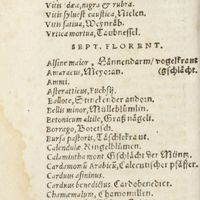 Vitis dææ, nigra & rubra.
Vitis sylvest. caustica, Nielen.
Vitis sativa, Weynräb.
Vrtica mortua, Taubnessel.
SEPT. FLORENT.
Alsine maior, Hännendarm/ vogelkraut
Amaracus, Meyoran. (gschlächt.
Ammi.
Asteratticus, Fuchsij.
Ballote, Stinckender andorn.
Bellis minor, Mülleblümlin.
Betonicum altile, Graß nägel.
Borrago, Boretsch.
Bursa pastoris, Täschlekraut.
Calendulæ Ringelblümen.
Calamintha mont. Gschlächt der Müntz.
Cardamomū Arabicū, Calecutischer pfäffer.
Carduus asininus.
Carduus benedictus. Cardobenedict.
Chamæmalum, Chamomillen.